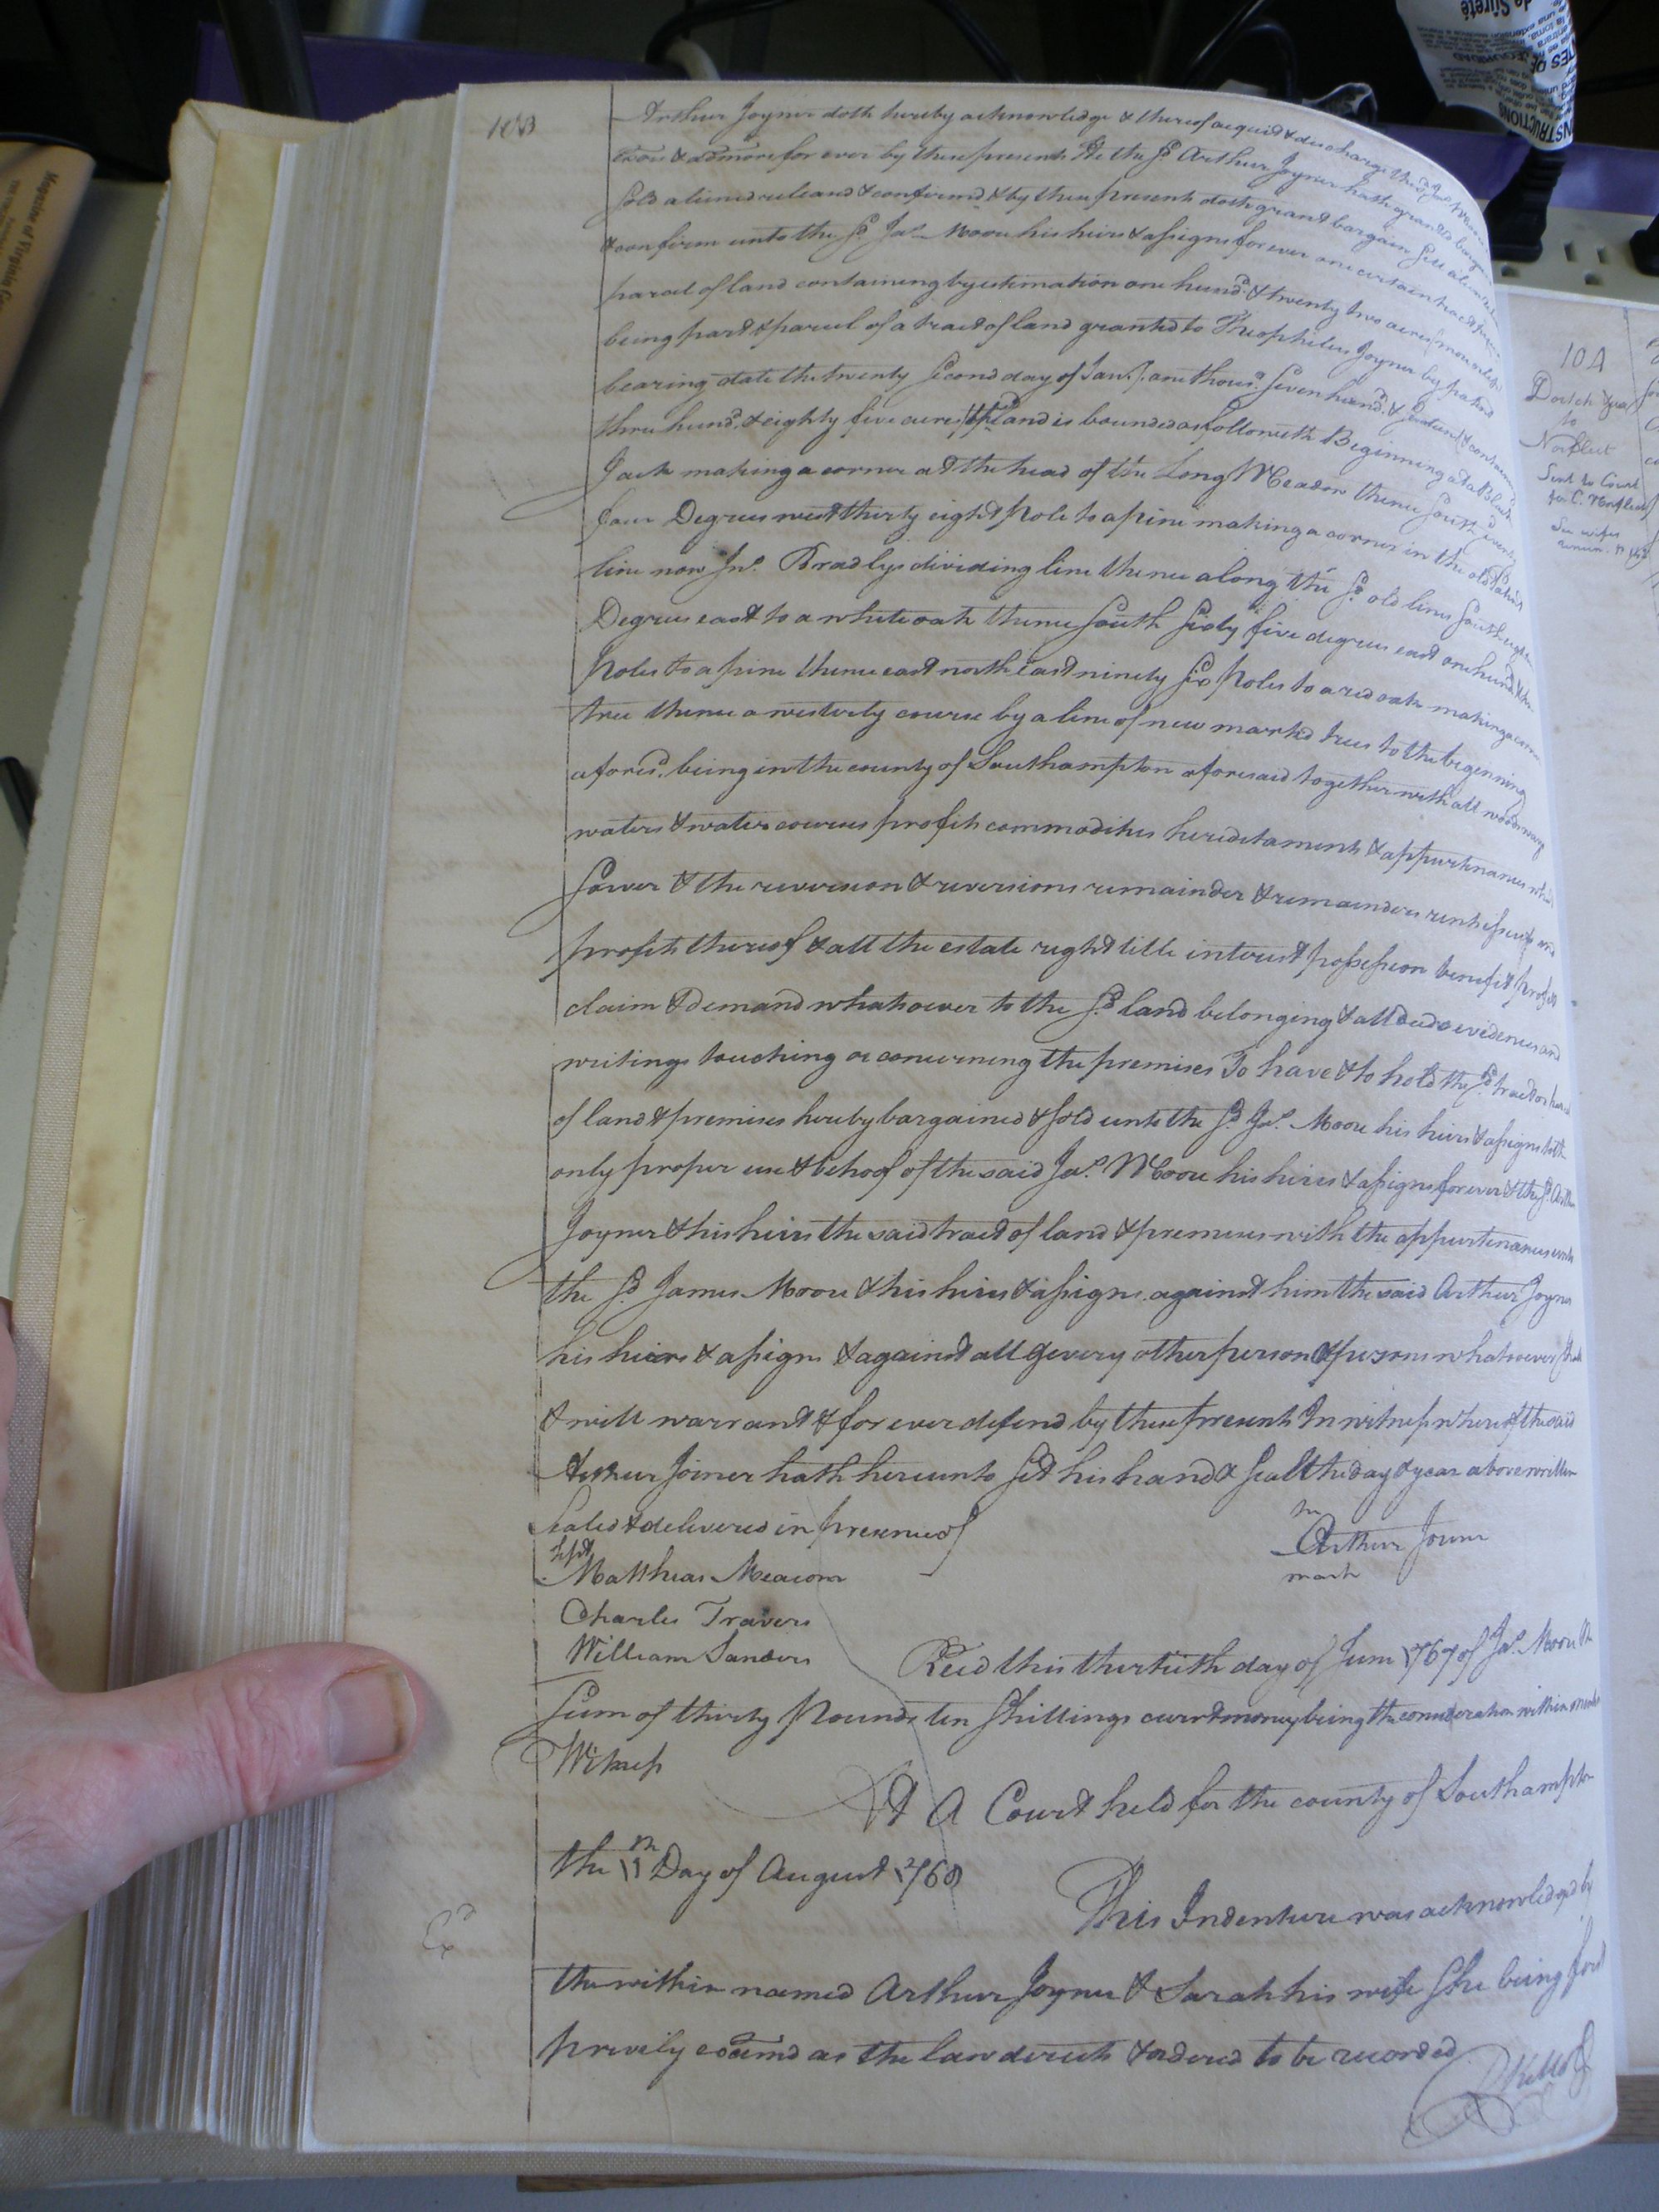 103
Arthur Joyner doth hereby acknowledge & thereof acquit & discharge the sd Jas.
exors & admors for ever by these presents He the sd Arthur Joyner hath granted
sold aliened released & confirmd & by these presents doth grant bargain sell alien
& confirm unto the sd Jas. Moore his heirs & assigns for ever one certain tract
parcel of land containing by estimation one hund.d & twenty two acres more or less
being part & parcel of a tract of land granted to Theophilus Joyner by patent
bearing date the twenty second day of Jan.y one thous.d seven hund.d &
three hund.d & eighty five acres sd land is bounded as followeth Beginning at a Black
Jack making a corner at the head of the Long Meadow thence South
four Degrees west thirty eight Pole to a pine making a corner in the old patent
line now Jno. Bradlys dividing line thence along the sd old line South
Degrees east to a white oak thence South Sixty five degrees east one hund.d
Poles to a pine thence east north east ninety six Poles to a red oak making a corner
tree thence a westerly course by a line of new markd trees to the beginning
aforesd. being in the county of Southampton aforesaid together with all woods ways
waters & water courses profits commodities hereditaments & appurtenances
sower & the reversion & reversions remainder & remainders rents issues and
profits thereof & all the estate right title interest possession benefit profit
claim & demand whatsoever to the sd land belonging & all deeds evidences and
writings touching or concerning the premises To have & to hold the sd tract or parcel
of land & premises hereby bargained & sold unto the sd Jas. Moore his heirs & assigns to the
only proper use & behoof of the said Jas. Moore his heirs & assigns for ever & the sd Arthur
Joyner & his heirs the said tract of land & premises with the appurtenances unto
the sd James Moore & his heirs & assigns against him the said Arthur Joyner
his heirs & assigns & against all & every other person & persons whatsoever shall
& will warrant & for ever defend by these presents In witness whereof the said
Arthur Joiner hath hereunto set his hand & seal the day & year above written
Sealed & delivered in presence of
Matthias Meacom
Charles Travers
William Sanders
Arthur Joiner
mark
Recd this thirtieth day of June 1767 of Jas. Moore the
Sum of thirty Pounds ten Shillings currt money being the consideration within
Witness
At A Court held for the county of Southampton
the 11th Day of August 1768
This Indenture was acknowledged by
Exd
the within named Arthur Joyner & Sarah his wife she being first
privily examd as the law directs & ordered to be recorded
104
to
Norfleet
Sent to Court
Magazine of Virginia
de Sûreté